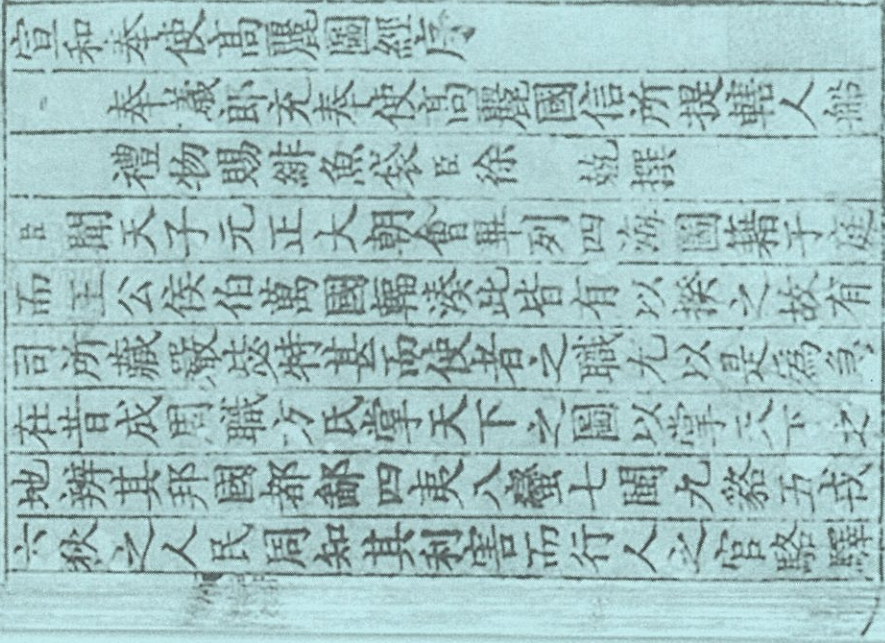 宣和奉使高麗圖經序
奉議郎充奉使高麗國信所提轄人船
禮物賜緋魚袋臣徐 兢撰
臣聞天子元正大朝會畢列四海圖籍于庭
而王公侯伯萬國輻湊此皆有以揆之故有
司所藏嚴毖特甚而使者之職尤以是為急
在昔成周職方氏掌天下之圖以掌天下之
地辨其邦國都鄙四夷八蠻七閩九貉五戎
六狄之人民周知其利害而行人之官駱驛